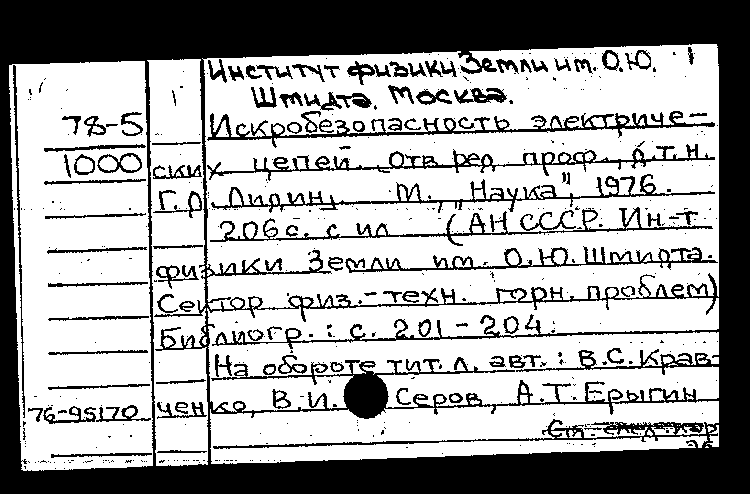 Институт физики Земли им. О.Ю.
Шмидта. Москва.
78-5 Искробезопасность электриче-
1000 ских цепей. Отв ред проф., д.т.н.
Г.Д Лидин, М., „Наука", 1976.
206 с. с ил (АН СССР. Ин-т
физики Земли им. О.Ю. Шмидта.
Сектор физ.-техн. горн. проблем)
Библиогр.: с. 201-204.
На обороте тит. л. авт.: В.С. Крав-
76-95170 ченко, В.И. Серов, А.Т. Ерыгин
См. след. кар